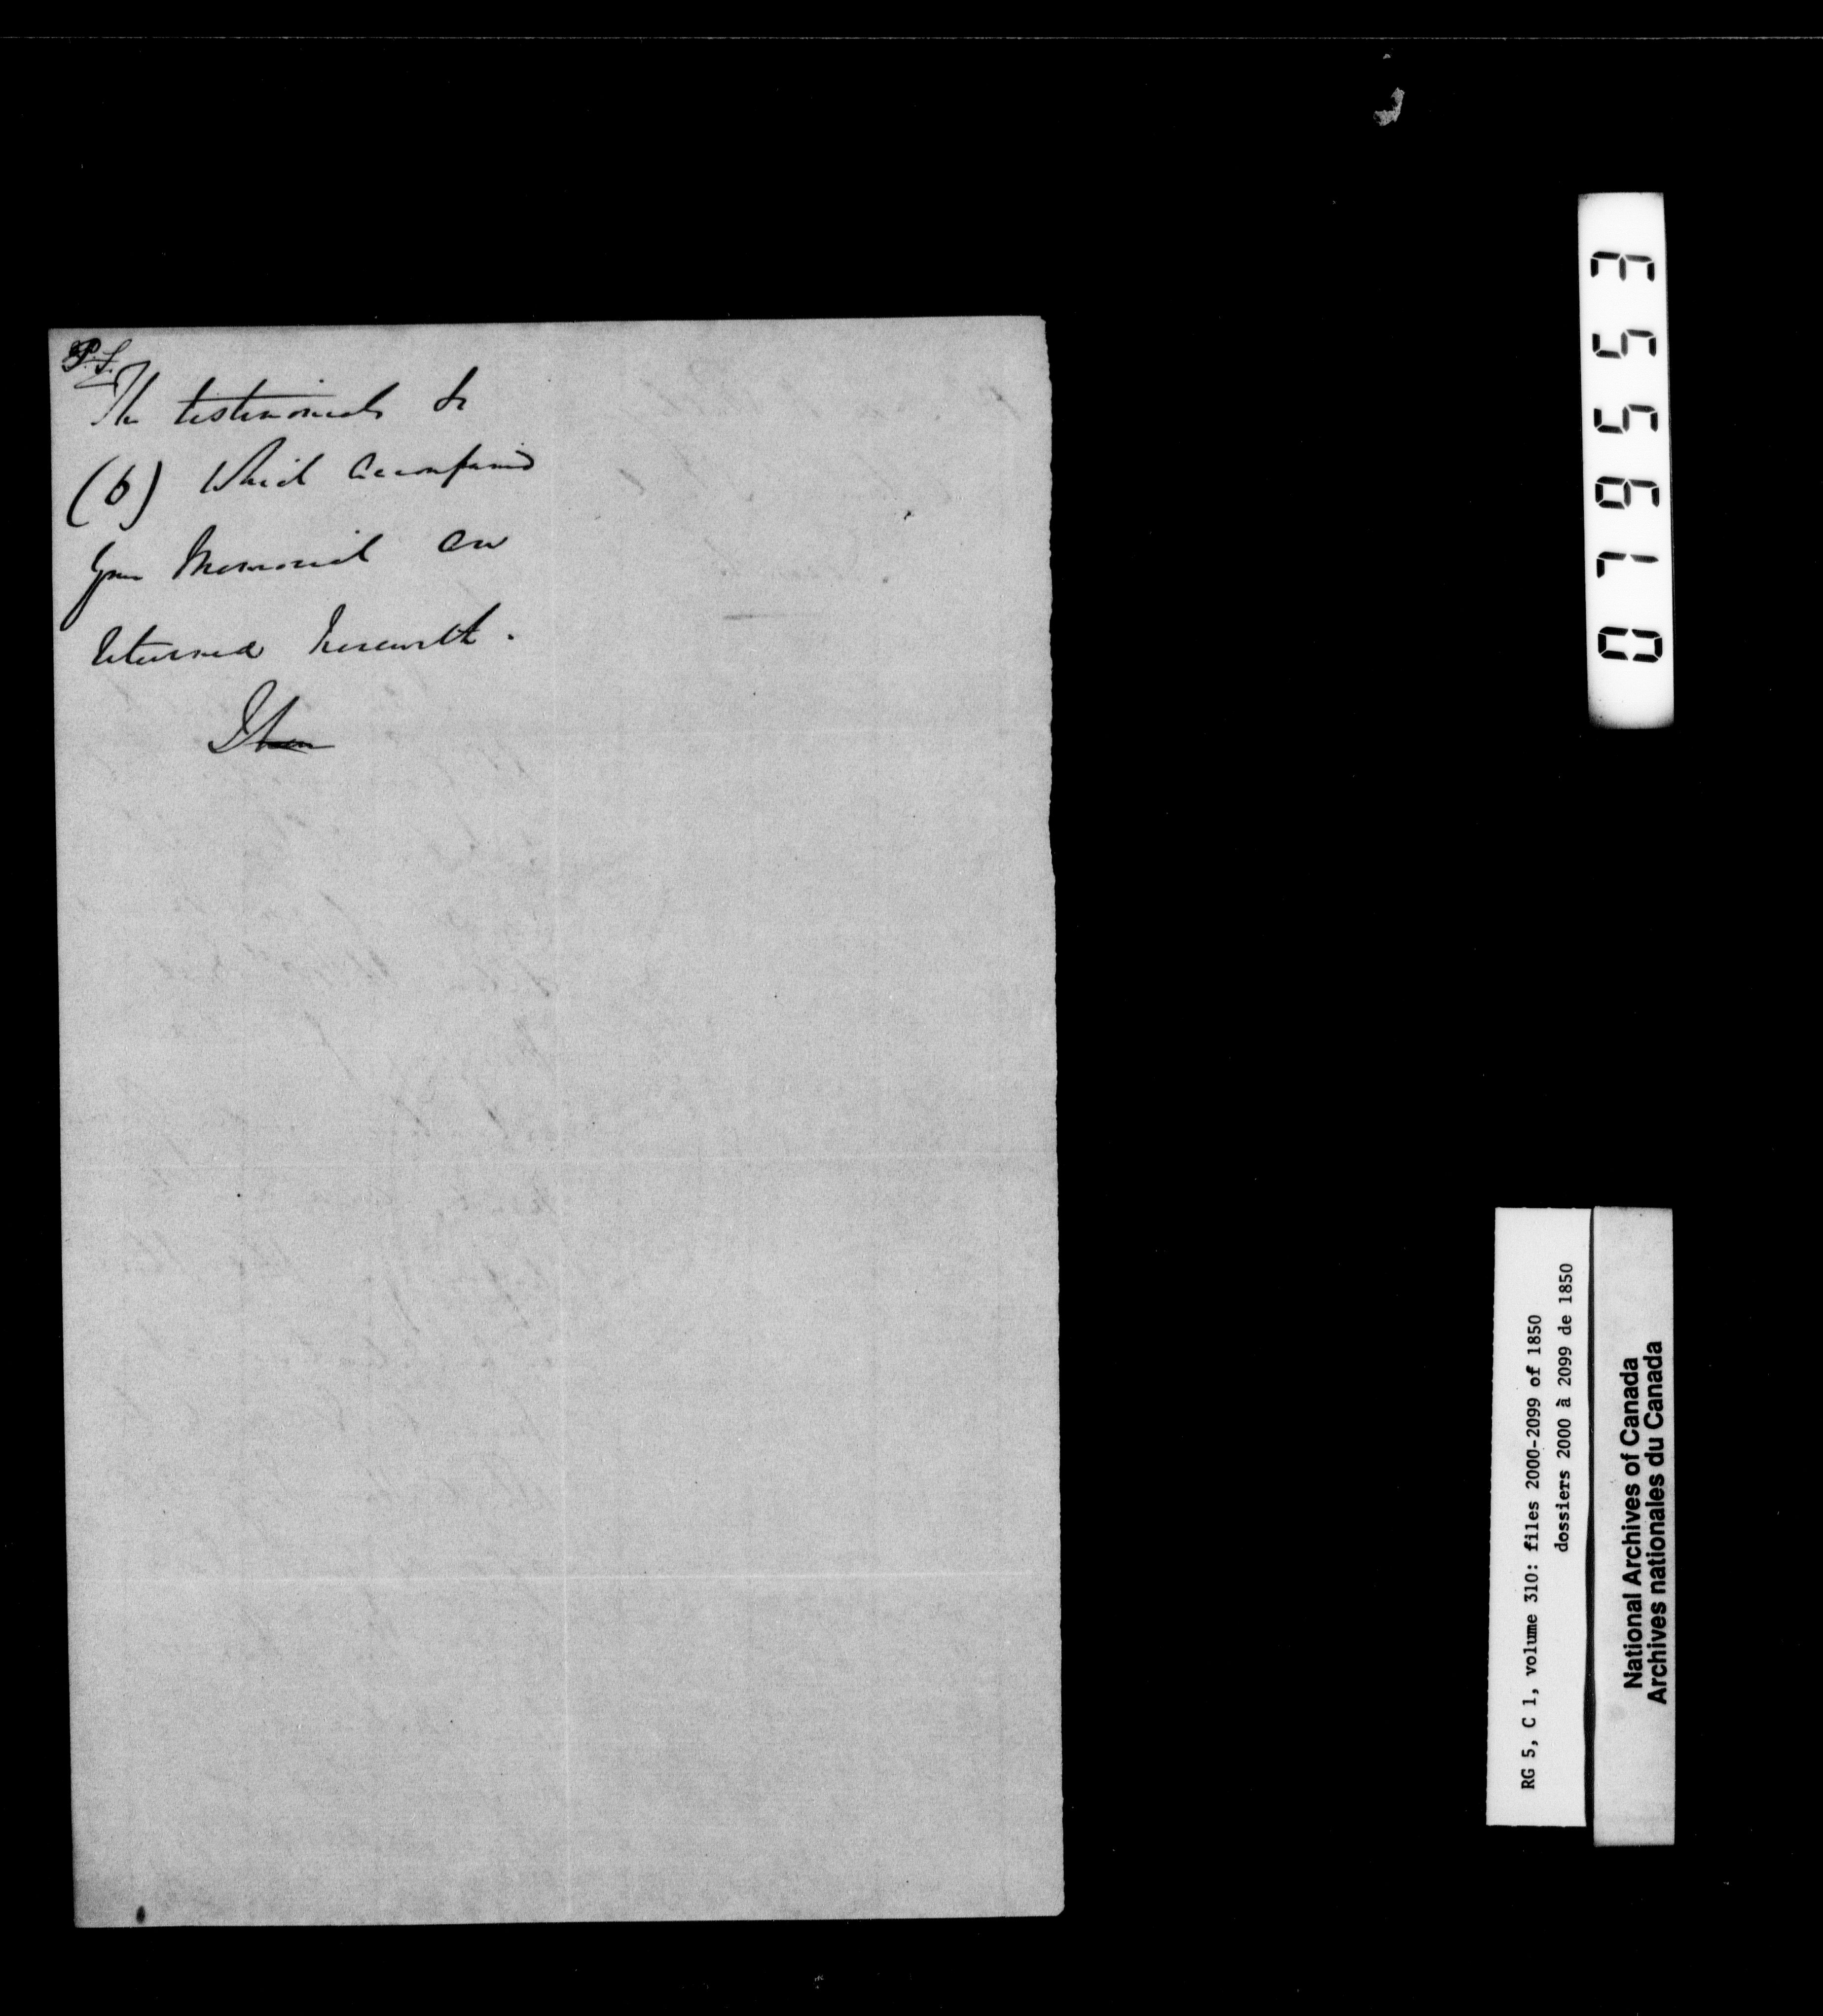 P.S.
The testimonials &c
(6) which accompanied
your Memorial are
returned herewith.
017955E
RG 5, C 1, volume 310: files 2000-2099 of 1850
dossiers 2000 à 2099 de 1850
National Archives of Canada
Archives nationales du Canada